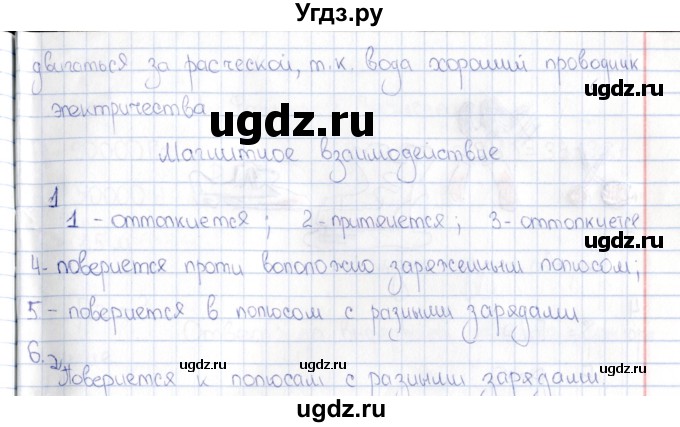 Угдз.ру
двигаться за расческой, т.к. вода хороший проводник
ugdz.ru
электричества
ugdz.ru
ugdz.ru
Магнитное взаимодействие
1
1 - оттолкнется ; 2 - притянется ; 3 - оттолкнется
ugdz.ru
4 - повернется противоположно заряженным полюсом;
ugdz.ru
5 - повернется в полюсом с разными зарядами
ugdz.ru
6.
Повернется к полюсам с разными зарядами.
ugdz.ru
ugdz.ru
ugdz.ru